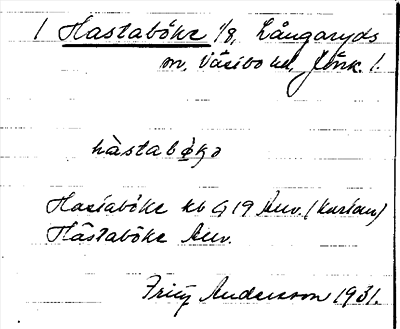 1 Hastaböke 1/8, Långaryds
sn, Västbo hd, Jönk. l.
hàstabø̀kə
Hastaböke kb G 19 Anv. (kartan)
Håstaböke Anv.
Fritz Andersson 1931.